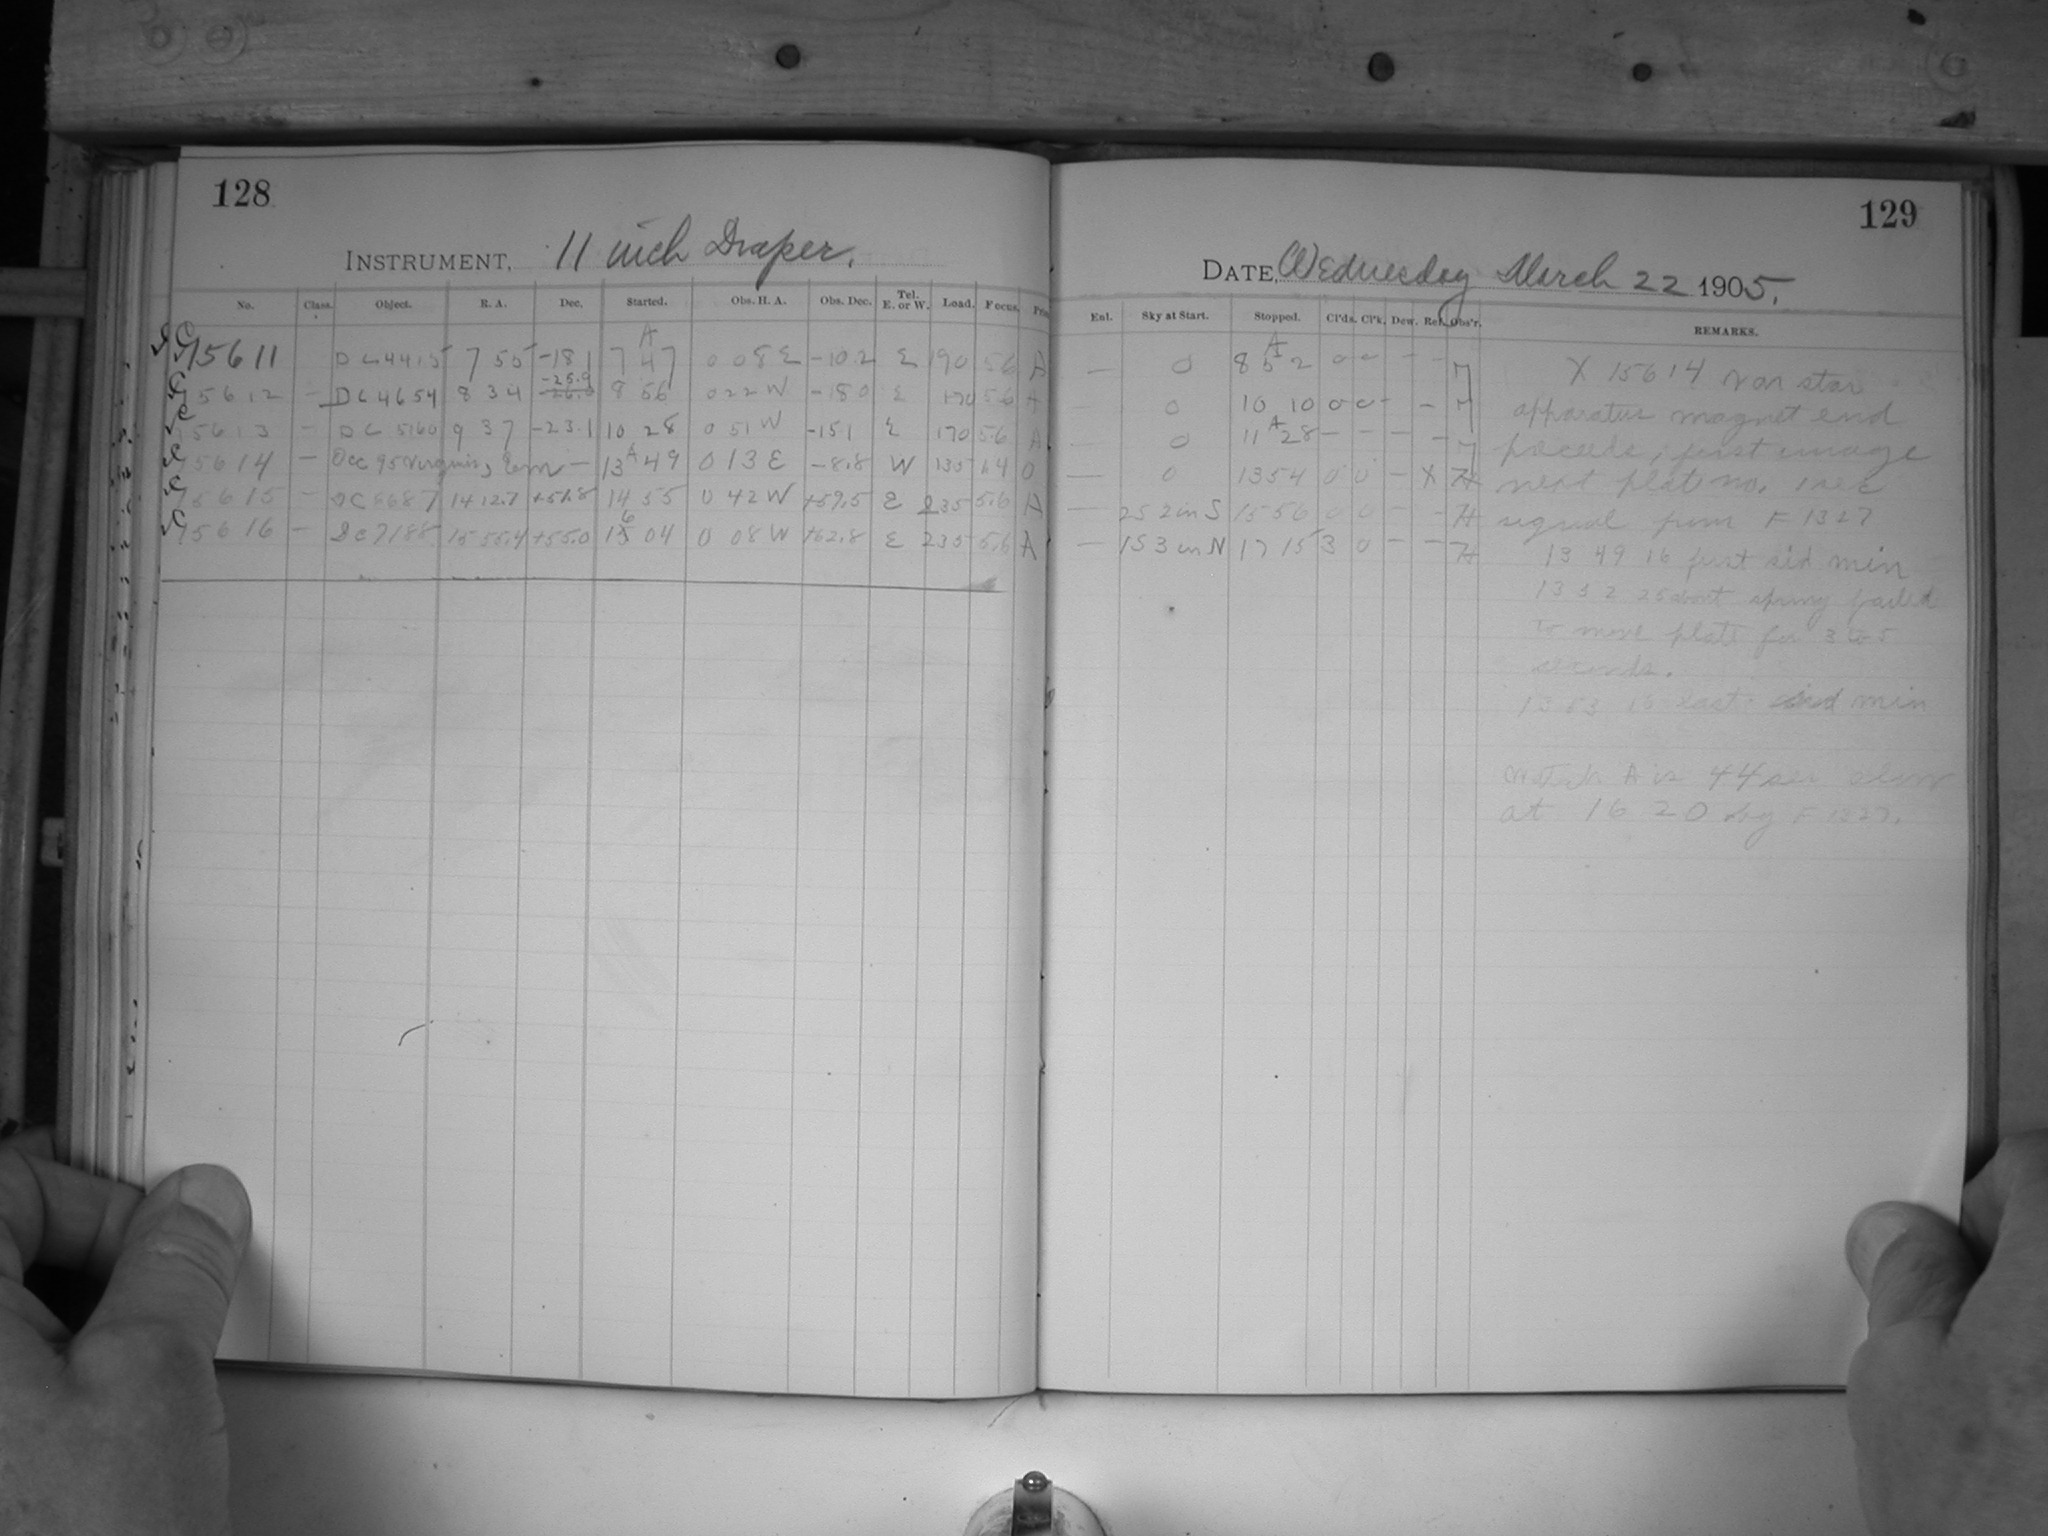 128
INSTRUMENT, 11 inch Draper.
No. Class. Object. R. A. Dec. Started. Obs. H. A. Obs. Dec. Tel. E. or W. Load. Focus.
A
15611 DC 4415 7 55 -18.1 7 47 0 08 E -10.2 E 190 5.6 A
-25.9
15612 — DC 4654 8 34 8 56 0 22 W -18.0 E 170 5.6 A
15613 — DC 5160 9 37 -23.1 10 28 0 51 W -15.1 E 170 5.6 A
15614 — Occ 95 Virginis, — 13 A 49 0 13 E -8.8 W 135 O
15615 — DC 6687 14 12.7 +51.8 14 55 0 42 W +59.5 E 235 5.6 A
15616 — DC 7188 15 55.4 +55.0 16 04 0 08 W +62.8 E 235 5.6 A
129
DATE, Wednesday March 22 1905.
Enl. Sky at Start. Stopped. Cl'ds. Cl'k. Dew. Ref. Obs'r. REMARKS.
A
— 0 8 52 0 0 - - M
— 0 10 10 0 0 - - M
— 0 11 A 28 - - - - M
— 0 13 54 0 0 - X H
— 25 2 in S 15 56 0 0 - - H
— 15 3 in N 17 15 3 0 - - H
X 15614 var star
apparatus magnet end
precede, first image
next plate no. 1 sec
signal from F 1327
13 49 16 first sid min
13 52 25 about spring failed
to move plate for 3 to 5
seconds.
13 53 16 last sid min
Watch A is 44 sec slow
at 16 20 by F 1327.